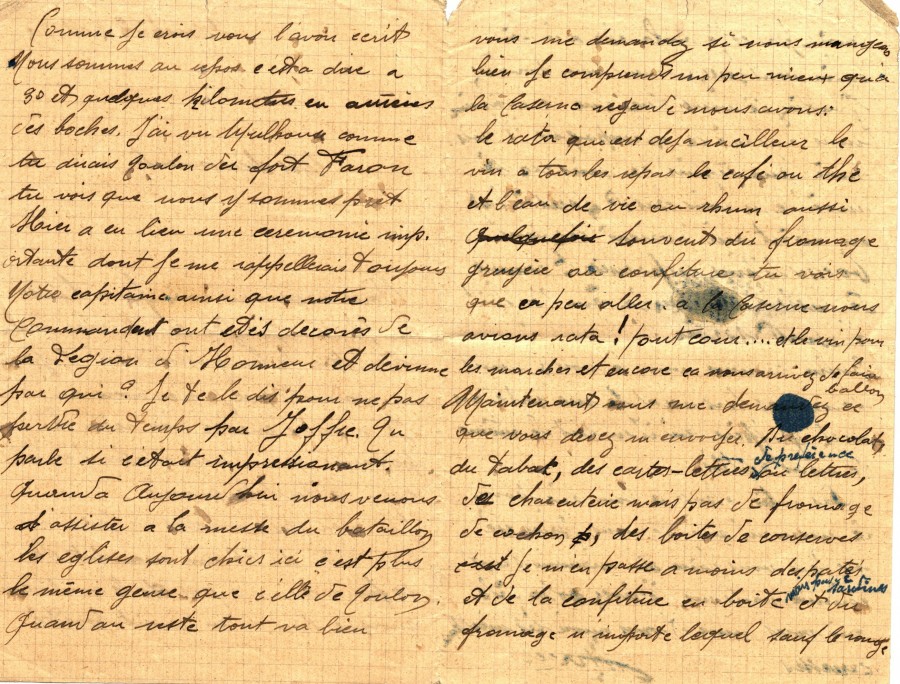 Comme je crois vous l'avoir ecrit
Nous sommes au repos c esta dire a
30 et quelques kilometres en arrieres
des boches. J'ai vu Mulhouse comme
tu dirais Toulon du fort Faron
tu vois que nous y sommes pret
Hier a eu lieu une ceremonie imp.
ortante dont je me rappellerais toujours
Notre capitaine ainsi que notre
Commandant ont etés decorés de
la Legion d'Honneur et devinne
par qui? Je te le dis pour ne pas
perdre du temps par Joffre. Tu
parle si c etait impressionant.
Quand a Aujourd'hui nous venons
d'assister a la messe du bataillon
les eglises sont chics ici c'est plus
le même genre que celle de Toulon.
Quand au reste tout va bien
vous me demandez si nous mangeons
bien je comprends un peu mieux qu'a
la Caserne regarde nous avons:
le rata qui est deja meilleur le
vin a tous les repas le café ou thé
et l'eau de vie ou rhum aussi
quelquefois souvent du fromage
gruyère ou confiture tu vois
que ca peu aller. a la Caserne nous
avions rata! tout cour.... et le vin pour
les marches et encore ca nous arrivez de faire
ballon
Maintenant vous me demandez ce
que vous devez m envoyer. Du chocolat
de préférence
du tabac, des cartes-lettres ou lettres,
de charcuterie mais pas de fromage
de cochon, des boites de conserves
je m'en passe a moins des patés
mais pas de sardines
et de la confiture en boite et du
fromage n importe lequel sauf le rouge